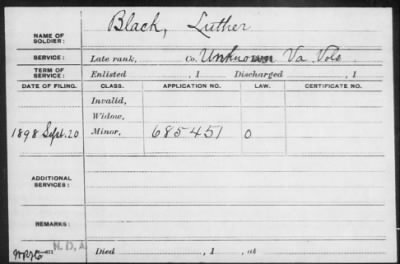 NAME OF SOLDIER: Black, Luther
SERVICE: Late rank, Co. Unknown Va Vols
TERM OF SERVICE: Enlisted , 1 Discharged , 1
DATE OF FILING. CLASS. APPLICATION NO. LAW. CERTIFICATE NO.
Invalid,
Widow,
1898 Sept. 20 Minor, 685451 O
ADDITIONAL SERVICES:
REMARKS:
N.D.A. Died , 1 , at